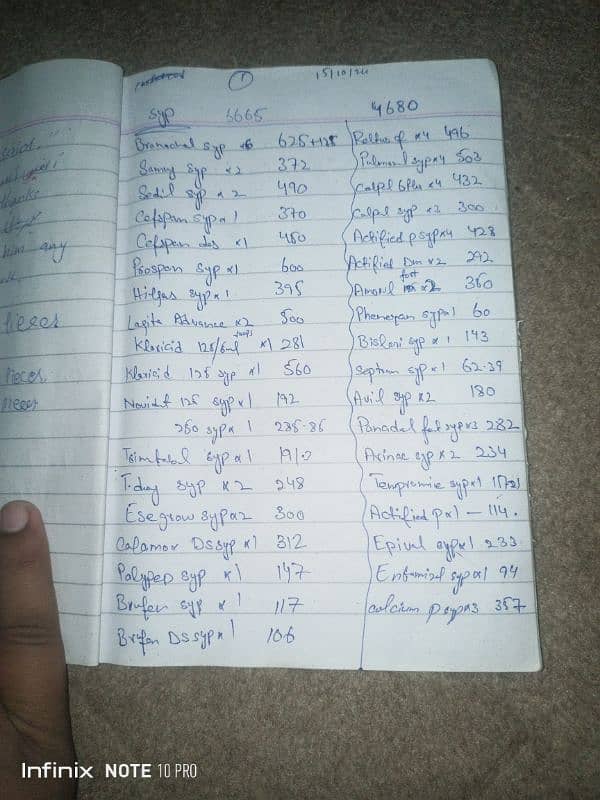 ① 15/10/24
syp 6665
Bronochol syp x6 625+125
Sanny syp x2 372
Sedil syp x2 490
Cefspan syp x1 370
Cefspan dos x1 450
Prospan syp x1 600
Hilgas syp x1 395
Laqita Advance x2 500
Klaricid 125/5ml drops x1 281
Klaricid 125 syp x1 560
Novidat 125 syp x1 192
250 syp x1 235.85
syp x1
T-day syp x2 248
Esegrow syp x2 300
Calamox DS syp x1 312
Polypep syp x1 147
Brufen syp x1 117
Brufen DS syp x1 106
4680
x4 496
Pulmonol syp x4 503
Calpol 6Plus x4 432
Calpol syp x3 300
Actified p syp x4 428
Actified Dm x2 292
Amoxil fort x2 350
Phenergan syp x1 60
syp x1 143
Septran syp x1 62.39
Avil syp x2 180
Panadol syp x3 282
Arinac syp x2 234
syp x1
Actified p x1 — 114.
Epival syp x1 233
Entamizol syp x1 94
calcium p syp x3 357
him any
Pieces
Pieces
Pieces
Infinix NOTE 10 PRO